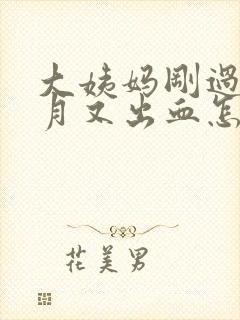 大姨妈刚過
月又出血怎
花美男